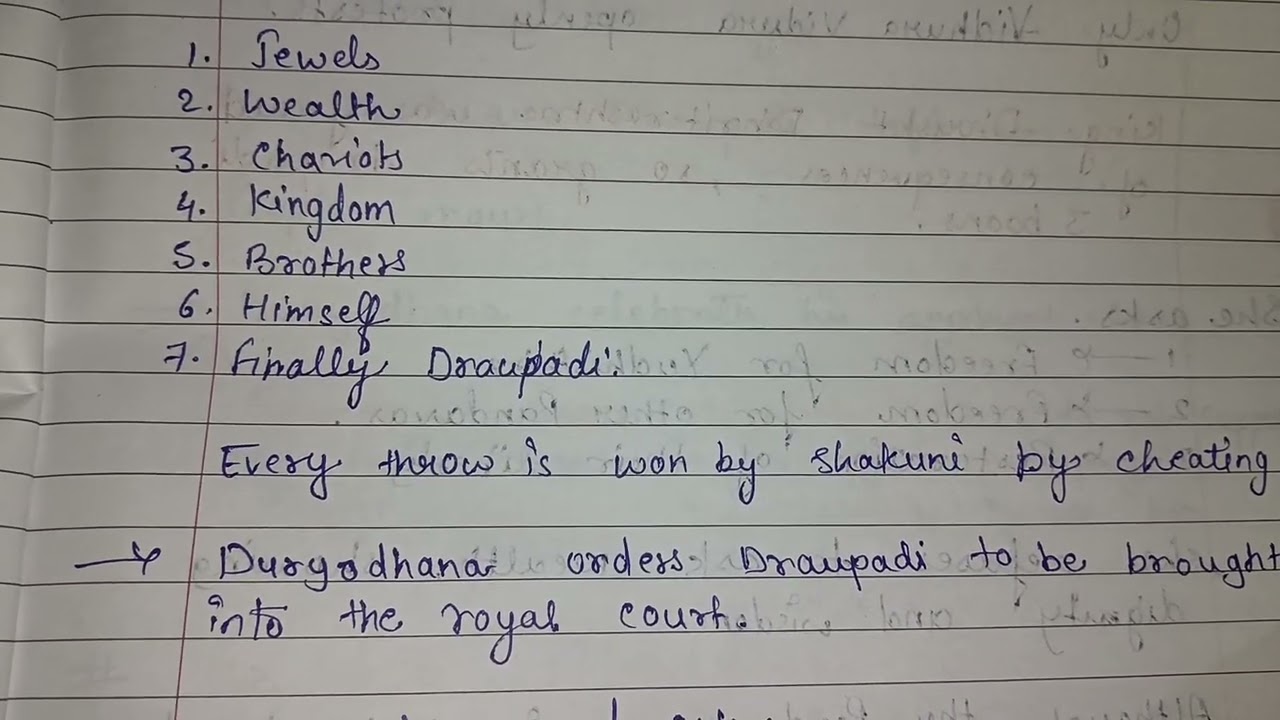 1. Jewels
2. Wealth
3. Chariots
4. Kingdom
5. Brothers
6. Himself
7. Finally Draupadi.
Every throw is won by Shakuni by cheating
→ Duryodhana orders Draupadi to be brought
into the royal court.